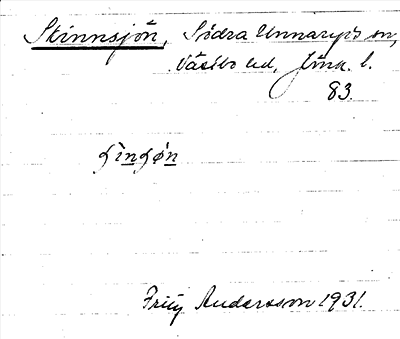 Skinnsjön, Södra Unnaryds sn,
Västbo hd, Jönk. l.
83.
ʃìnʃø̀n
Fritz Andersson 1931.